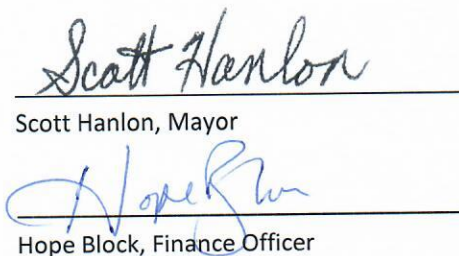 Scott Hanlon
Scott Hanlon, Mayor
Hope Block
Hope Block, Finance Officer